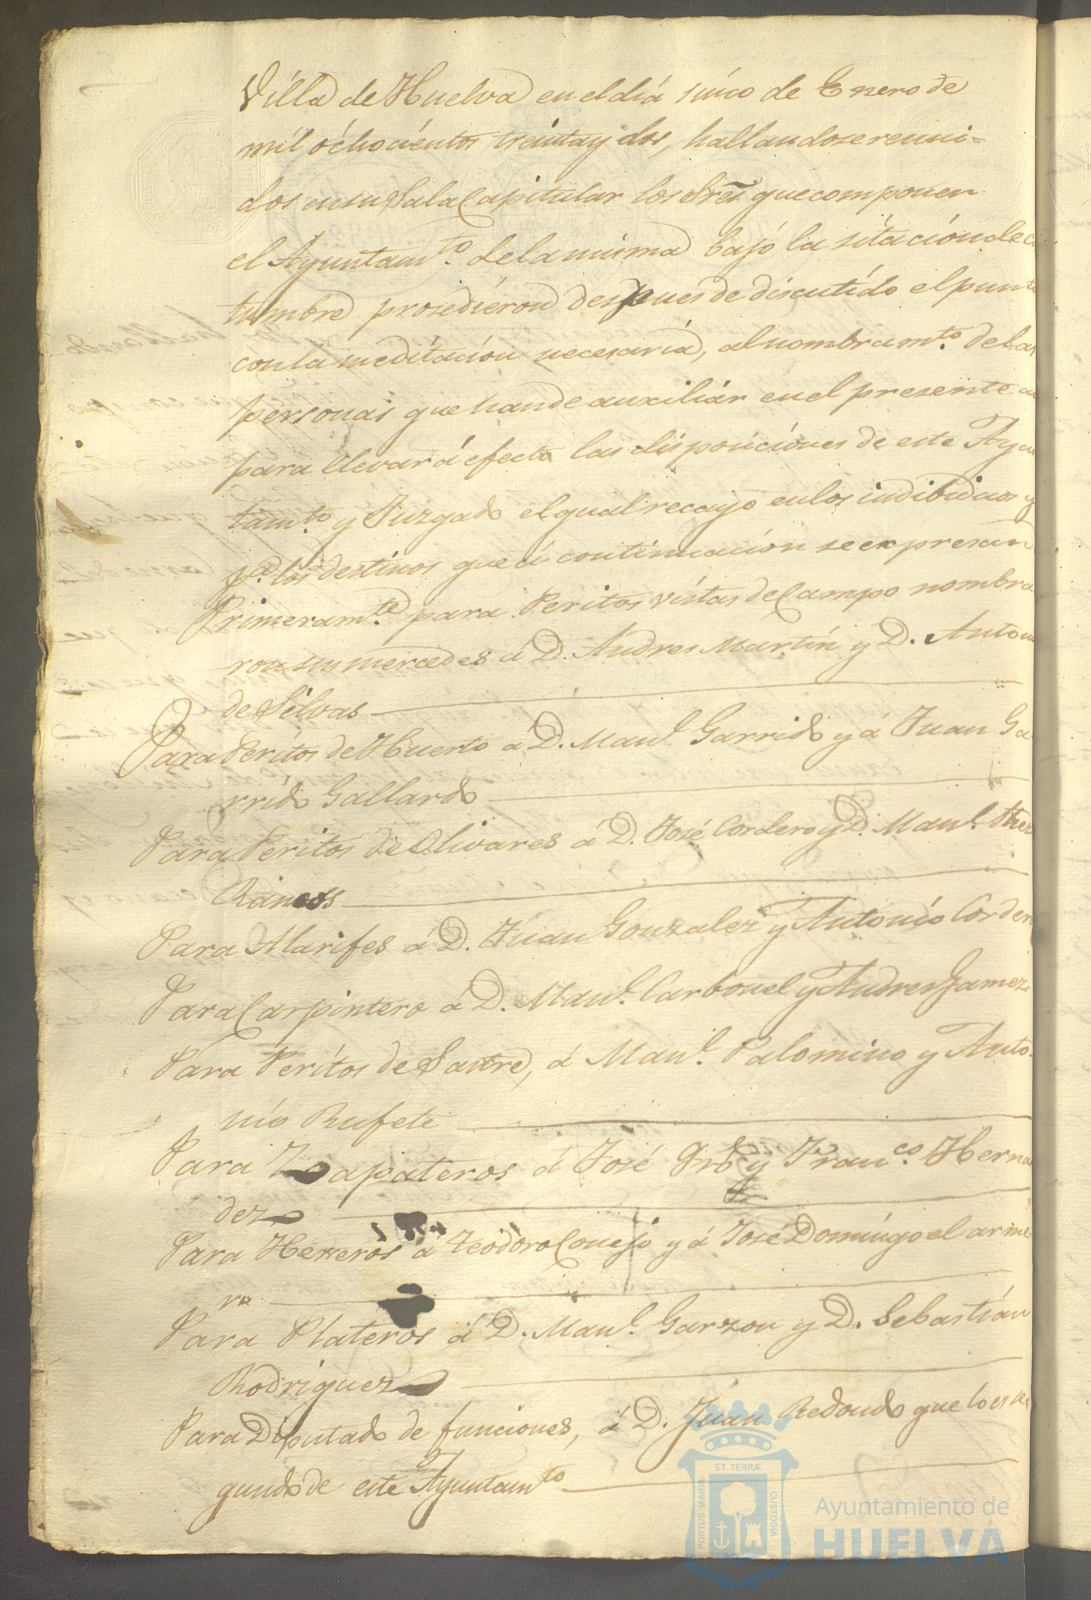 Villa de Huelva en el dia sinco de Enero de
mil ochocientos treinta y dos, hallandose reuni-
dos en su Sala Capitular los Sres. que componen
el Ayuntamto. de la misma bajo la sitación de co
tumbre prosedieron despues de discutido el punto
con la meditacion necesaria, al nombramto. de las
personas que han de auxiliar en el presente a
para llevar á efecto las disposiciones de este Ayun
tamto y Juzgado el qual recayo en los indibiduos y
pa. los destinos que á continuacion se expresan
Primeramte. para Peritos vistas de Campo nombra
ron sus mercedes á D. Andres Martin y D. Anton
de Silvas
Para Peritos de Huerto á D. Manl. Garrido y á Juan Ga
rrido Gallardo
Para Peritos de Olivares á D. José Cordero y D. Manl.
Ramos
Para Alarifes á D. Juan Gonzalez y Antonio Corder
Para Carpintero á D. Manl. Carbonel y Andres Gamez
Para Peritos de Sastre, á Manl. Palomino y Anto-
nio Rufete
Para Zapateros á José y Franco. Herna
dez
Para Herreros á Teodoro Conejo y á José Domingo el arme
ro
Para Plateros á D. Manl. Garzon y D. Sebastián
Rodriguez
Para Diputado de funciones, á D. Juan Redondo que lo es se
gundo de este Ayuntamto
ET TERRÆ
PORTUS MARIS
CUSTODIA
Ayuntamiento de
HUELVA